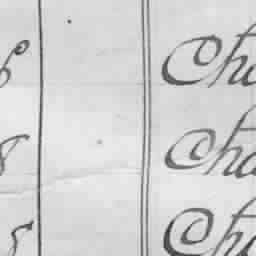 6 Cha
8 Cha
8 Cha